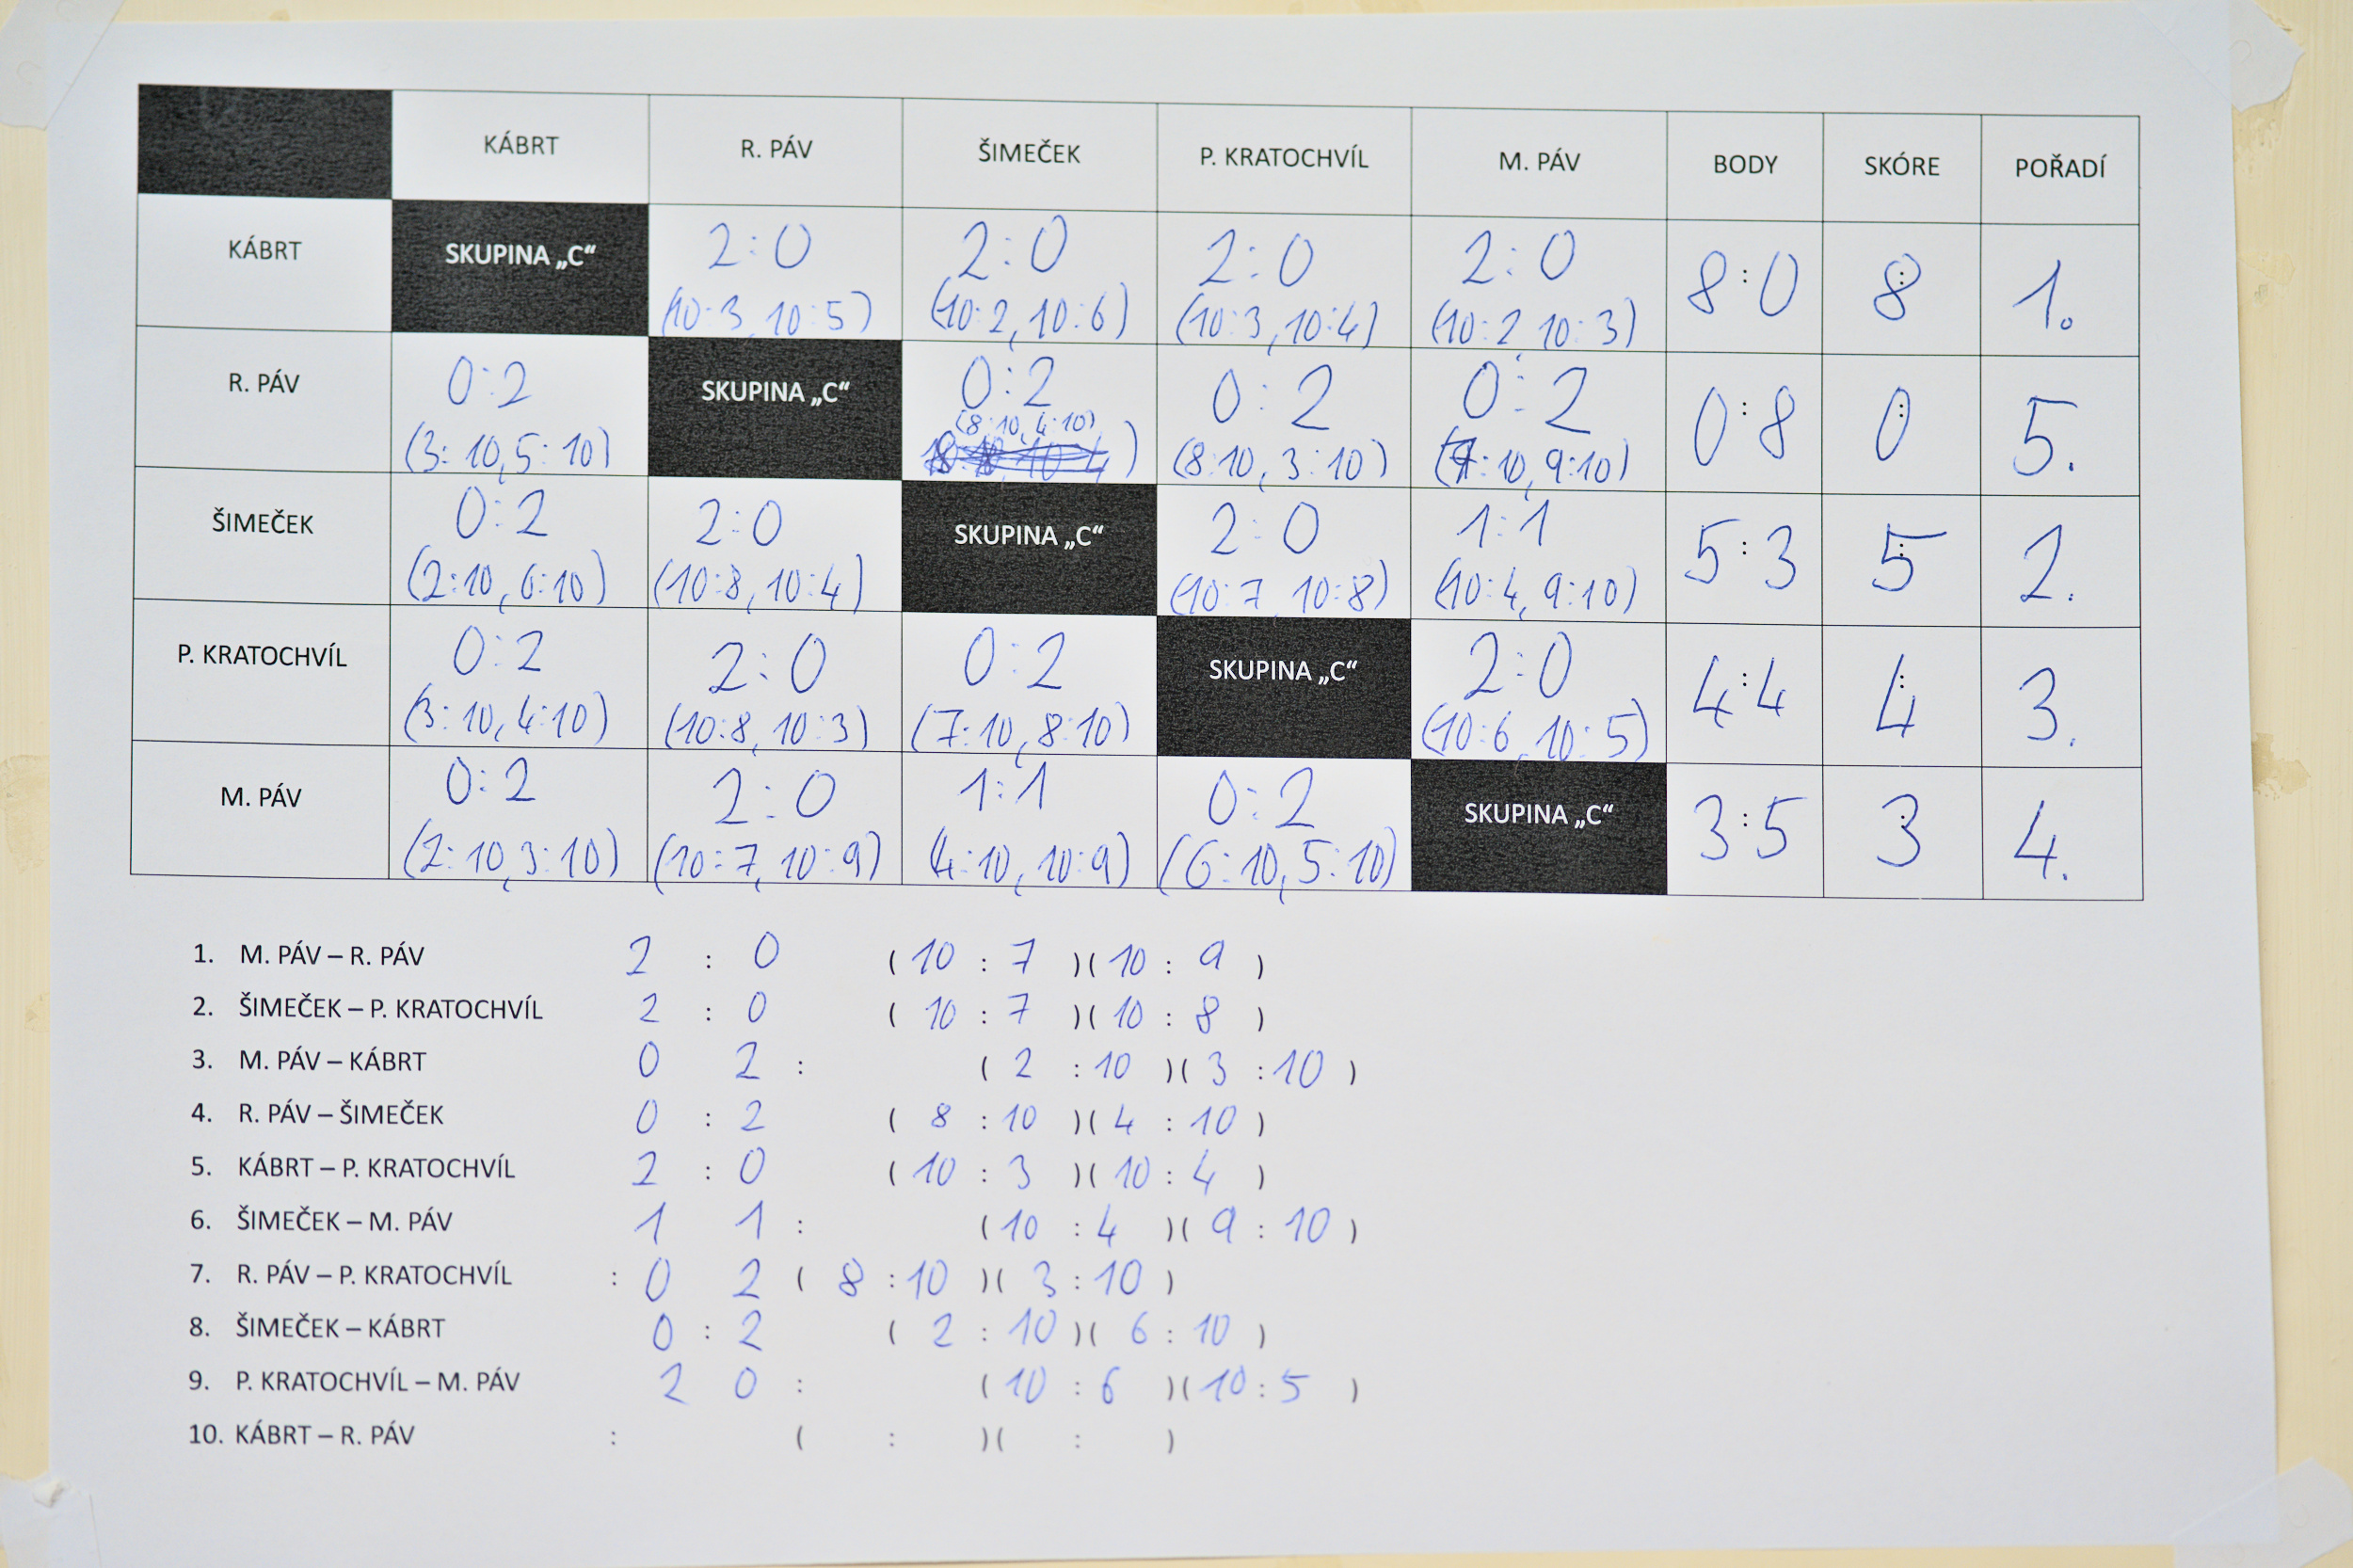 KÁBRT R. PÁV ŠIMEČEK P. KRATOCHVÍL M. PÁV BODY SKÓRE POŘADÍ
KÁBRT SKUPINA „C“ 2:0 2:0 2:0 2:0 8:0 8 1.
(10:3, 10:5) (10:2, 10:6) (10:3, 10:4) (10:2, 10:3)
R. PÁV 0:2 SKUPINA „C“ 0:2 0:2 0:2 0:8 0 5.
(8:10, 4:10)
(3:10, 5:10) (8:10, 3:10) (7:10, 9:10)
ŠIMEČEK 0:2 2:0 SKUPINA „C“ 2:0 1:1 5:3 5 2.
(2:10, 6:10) (10:8, 10:4) (10:7, 10:8) (10:4, 9:10)
P. KRATOCHVÍL 0:2 2:0 0:2 SKUPINA „C“ 2:0 4:4 4 3.
(3:10, 4:10) (10:8, 10:3) (7:10, 8:10) (10:6, 10:5)
M. PÁV 0:2 2:0 1:1 0:2 SKUPINA „C“ 3:5 3 4.
(2:10, 3:10) (10:7, 10:9) (4:10, 10:9) (6:10, 5:10)
1. M. PÁV – R. PÁV 2 : 0 ( 10 : 7 )( 10 : 9 )
2. ŠIMEČEK – P. KRATOCHVÍL 2 : 0 ( 10 : 7 )( 10 : 8 )
3. M. PÁV – KÁBRT 0 2 : ( 2 : 10 )( 3 : 10 )
4. R. PÁV – ŠIMEČEK 0 : 2 ( 8 : 10 )( 4 : 10 )
5. KÁBRT – P. KRATOCHVÍL 2 : 0 ( 10 : 3 )( 10 : 4 )
6. ŠIMEČEK – M. PÁV 1 1 : ( 10 : 4 )( 9 : 10 )
7. R. PÁV – P. KRATOCHVÍL : 0 2 ( 8 : 10 )( 3 : 10 )
8. ŠIMEČEK – KÁBRT 0 : 2 ( 2 : 10 )( 6 : 10 )
9. P. KRATOCHVÍL – M. PÁV 2 0 : ( 10 : 6 )( 10 : 5 )
10. KÁBRT – R. PÁV : ( : )( : )